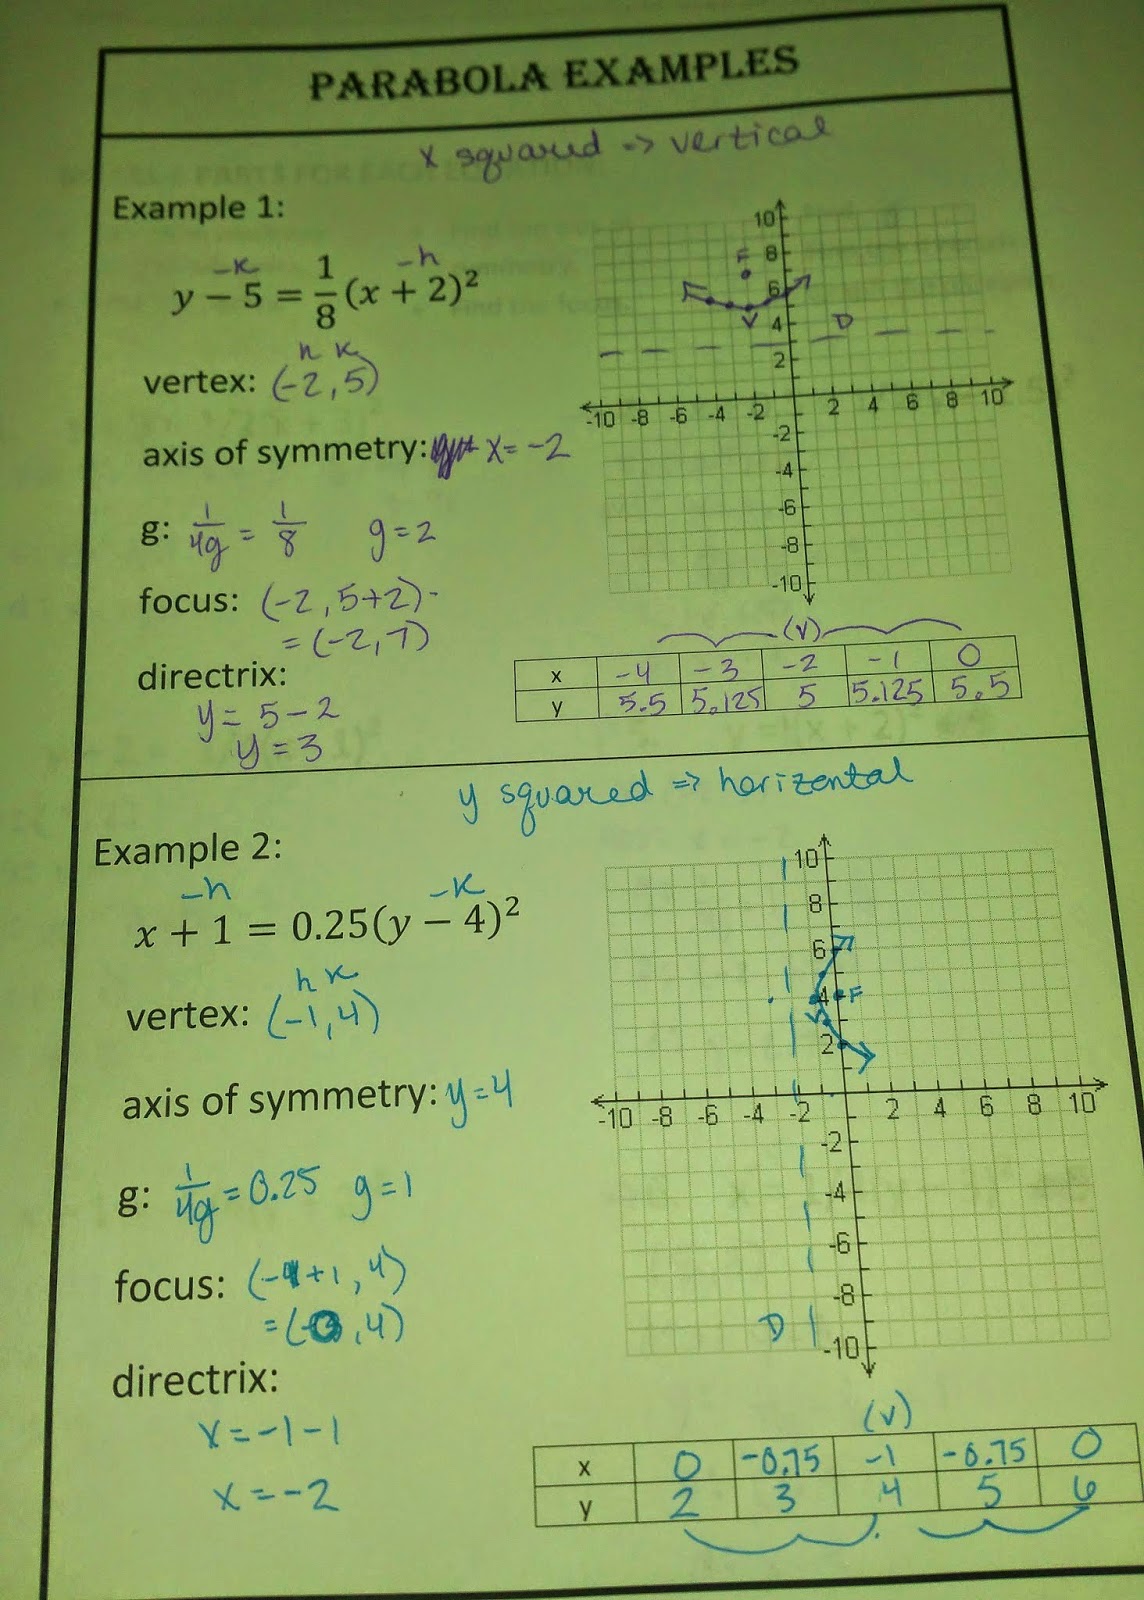 PARABOLA EXAMPLES
x squared => vertical
Example 1:
-k -h
y − 5 = 1/8 (x + 2)²
h k
vertex: (-2, 5)
axis of symmetry: x = -2
g: 1/4g = 1/8 g = 2
focus: (-2, 5+2)
= (-2, 7)
directrix:
y = 5 - 2
y = 3
10
8
6
4
2
-10 -8 -6 -4 -2 2 4 6 8 10
-2
-4
-6
-8
-10
F
V
D
(V)
x -4 -3 -2 -1 0
y 5.5 5.125 5 5.125 5.5
y squared => horizontal
Example 2:
-h -k
x + 1 = 0.25(y − 4)²
h k
vertex: (-1, 4)
axis of symmetry: y = 4
g: 1/4g = 0.25 g = 1
focus: (-1+1, 4)
= (0, 4)
directrix:
x = -1 - 1
x = -2
10
8
6
4
2
-10 -8 -6 -4 -2 2 4 6 8 10
-2
-4
-6
-8
-10
F
V
D
(V)
x 0 -0.75 -1 -0.75 0
y 2 3 4 5 6